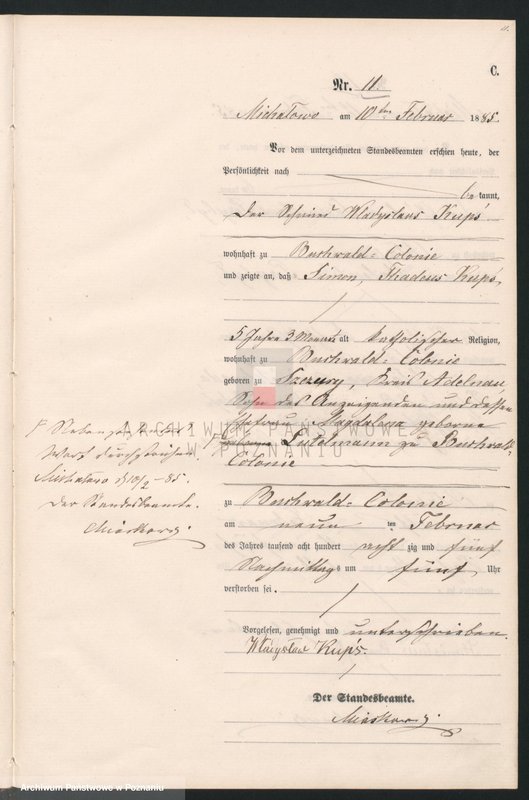 C.
Nr. 11.
Michałowo am 10ten Februar 1885.
Vor dem unterzeichneten Standesbeamten erschien heute, der
Persönlichkeit nach
bekannt,
Der Schmied Wladyslaus Kupś
wohnhaft zu Buchwald-Colonie
und zeigte an, daß Simon, Thadeus Kupś,
5 Jahre 3 Monate alt katholischer Religion,
wohnhaft zu Buchwald-Colonie
geboren zu Szczury, Kreis Adelnau,
Sohn des Anzeigenden und dessen
Ehefrau Magdalena geborne
zu Buchwald-
Colonie
zu Buchwald-Colonie
am neun ten Februar
des Jahres tausend acht hundert acht zig und fünf
Nachmittags um fünf Uhr
verstorben sei.
Vorgelesen, genehmigt und unterschrieben.
Władysław Kupś.
Der Standesbeamte.
Nebenzeile
Wort durchstrichen
Michałowo d 10/2 -85.
Der Standesbeamte.
ARCHIWUM PAŃSTWOWE
W POZNANIU
Archiwum Państwowe w Poznaniu